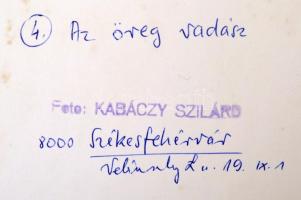 4. Az öreg vadász
Foto: KABÁCZY SZILÁRD
8000 Székesfehérvár
u. 19. IX. 1